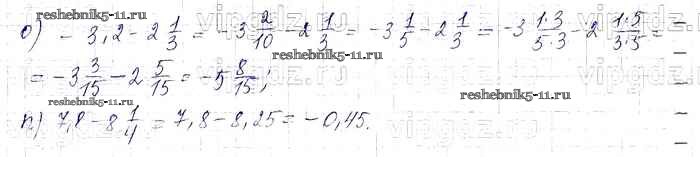 reshebnik5-11.ru
о) - 3,2 - 2 1/3 = -3 2/10 - 2 1/3 = -3 1/5 - 2 1/3 = -3 1·3/5·3 - 2 1·5/3·5 =
= -3 3/15 - 2 5/15 = -5 8/15;
reshebnik5-11.ru
reshebnik5-11.ru
п) 7,8 - 8 1/4 = 7,8 - 8,25 = -0,45.
vipgdz.ru